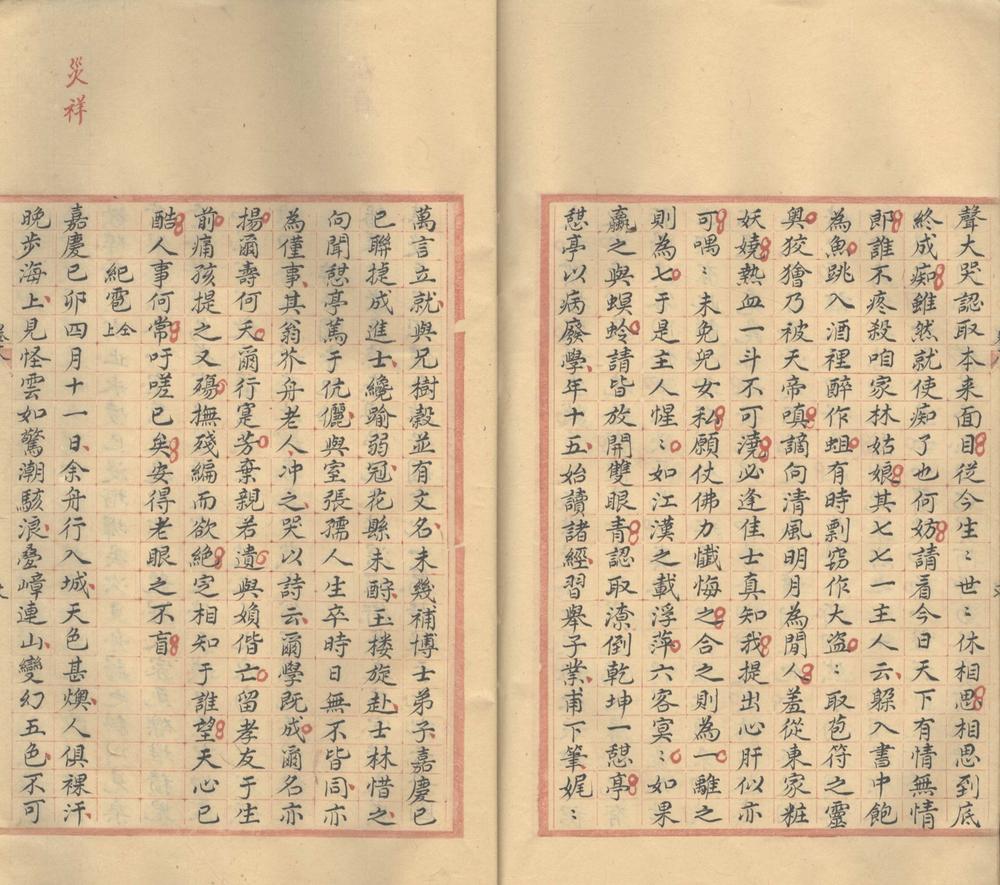 聲大哭認取本来面目從今生〻世〻休相思相思到底
終成痴雖然就使痴了也何妨請看今日天下有情無情
即誰不疼殺咱家林姑娘其七七一主人云躲入書中飽
為魚跳入酒裡醉作蛆有時剽窃作大盗〻取苞符之靈
奥狡獪乃被天帝嗔謫向清風明月為閒人羞從東家粧
妖嬈熱血一斗不可澆必逢佳士真知我提出心肝似亦
可喁〻未免兒女私願仗佛力懺悔之合之則為一離之
則為七于是主人惺〻如江漢之載浮萍六客寞〻如果
蠃之與螟蛉請皆放開雙眼青認取潦倒乾坤一憇亭
憇亭以病廢學年十五始讀諸經習舉子業甫下筆娓〻
萬言立就與兄樹穀並有文名未幾補博士弟子嘉慶已
已聯捷成進士纔踰弱冠花縣未酹玉楼旋赴士林惜之
向聞憇亭篤于伉儷與室張孺人生卒時日無不皆同亦
為僅事其翁芥舟老人冲之哭以詩云爾學既成爾名亦
揚爾壽何夭爾行寔芳棄親若遺與媍偕亡留孝友于生
前痛孩提之又殤撫殘編而欲絕定相知于誰望天心已
酷人事何常吁嗟已矣安得老眼之不盲
紀雹 仝上
嘉慶已卯四月十一日余舟行入城天色甚燠人俱裸汗
晚步海上見怪雲如驚潮駭浪叠嶂連山變幻五色不可
災祥